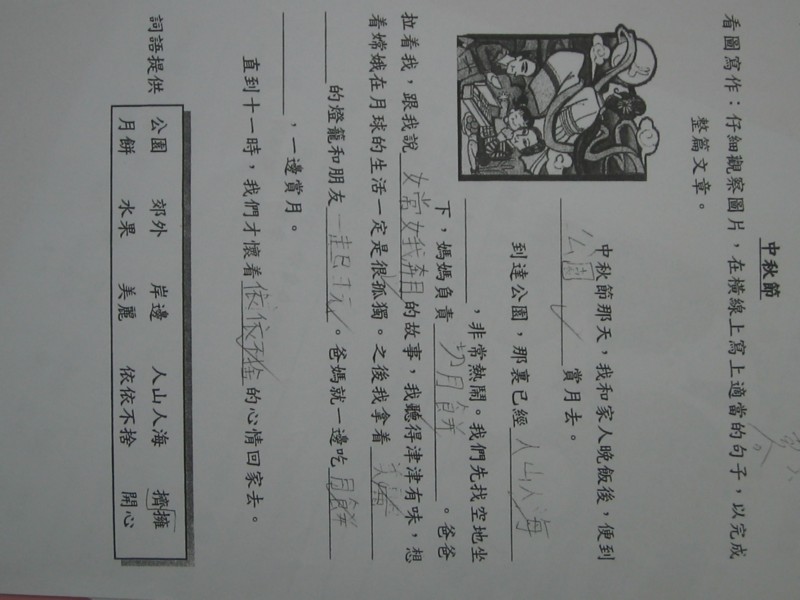 中秋節
看圖寫作：仔細觀察圖片，在橫線上寫上適當的句子，以完成
整篇文章。
中秋節那天，我和家人晚飯後，便到
公園賞月去。
到達公園，那裏已經人山人海
，非常熱鬧。我們先找空地坐
下，媽媽負責切月餅。爸爸
拉着我，跟我說女常女我奔月的故事，我聽得津津有味，想
着嫦娥在月球的生活一定是很孤獨。之後我拿着美麗
的燈籠和朋友一起玩。爸媽就一邊吃月餅
，一邊賞月。
直到十一時，我們才懷着依依不捨的心情回家去。
詞語提供
公園 郊外 岸邊 人山人海 擠擁
月餅 水果 美麗 依依不捨 開心